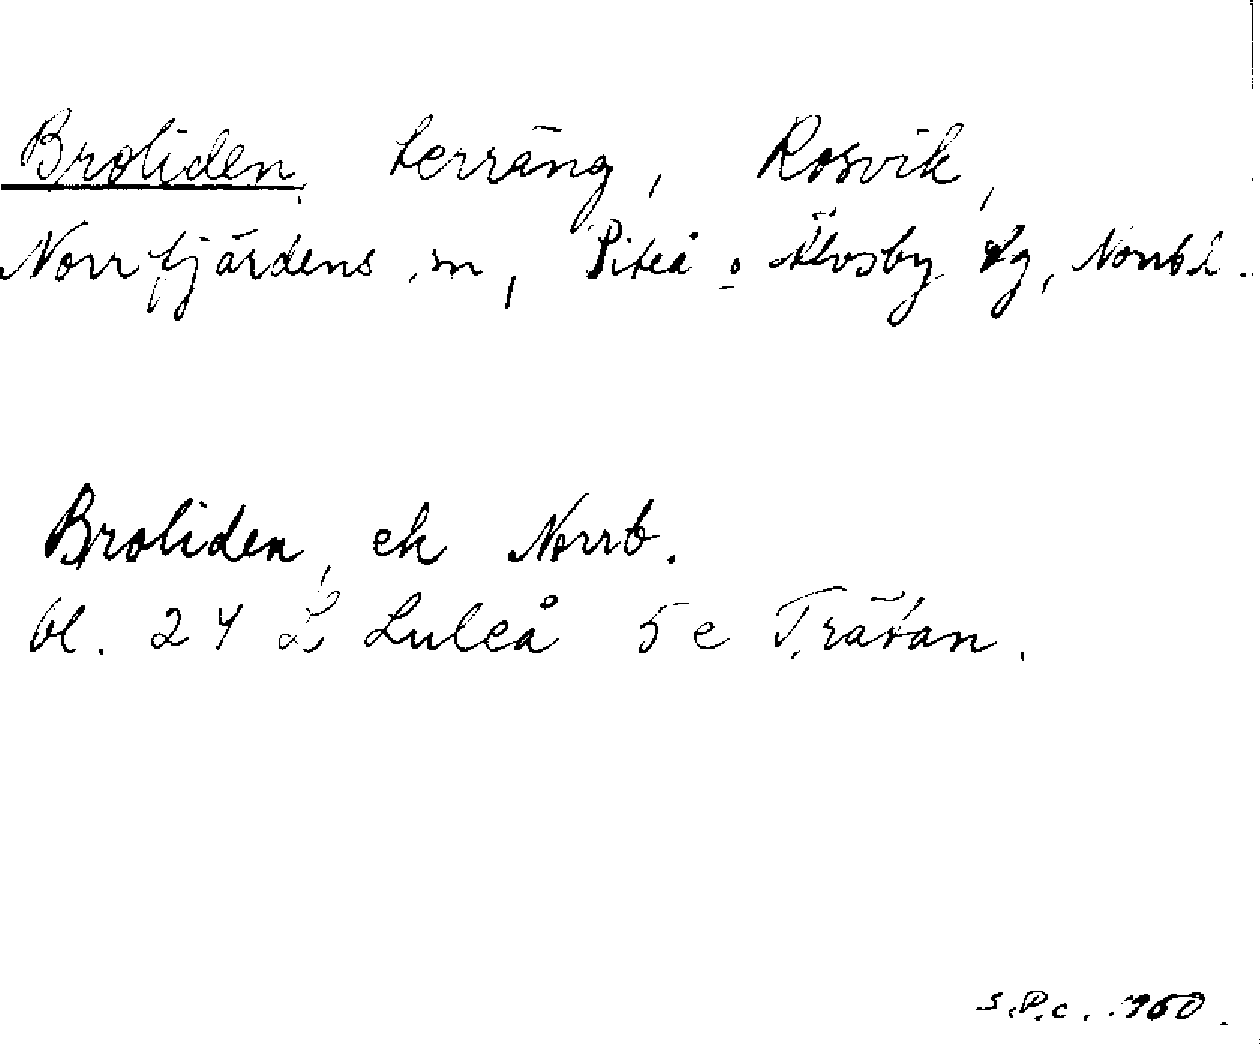 Broliden, terräng, Rosvik,
Norrfjärdens sn, Piteå o Älvsby tg, Nortbl.
Broliden, ek Norrb.
bl. 24 L Luleå 5 e Trätan.
S.P.C. 1960.